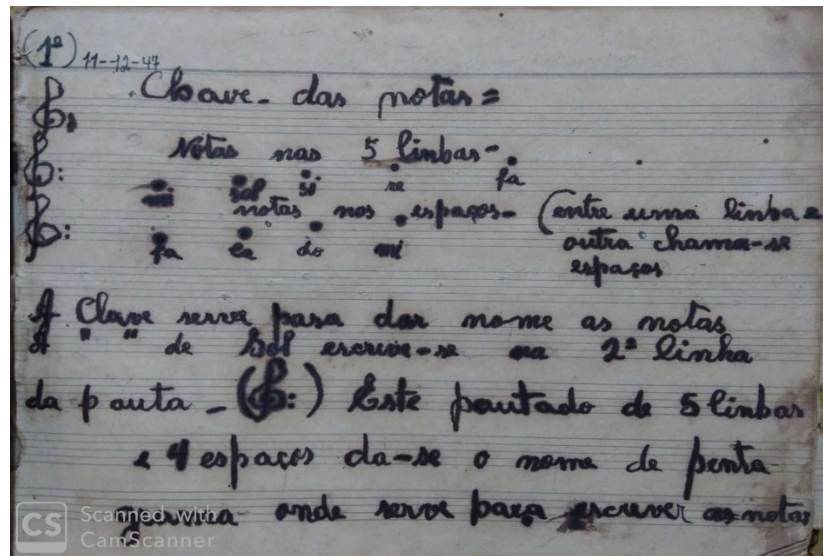 (1º) 11-12-47
Chave- das notas =
Notas nas 5 linhas-
mi sol si re fa
notas nos espaços- (entre uma linha e
fa la do mi outra chama-se
espaços
A Clave serve para dar nome as notas
A " " de Sol escreve-se na 2ª linha
da pauta - ( :) Este pautado de 5 linhas
e 4 espaços da-se o nome de penta-
grama onde serve para escrever as notas
CS Scanned with
CamScanner